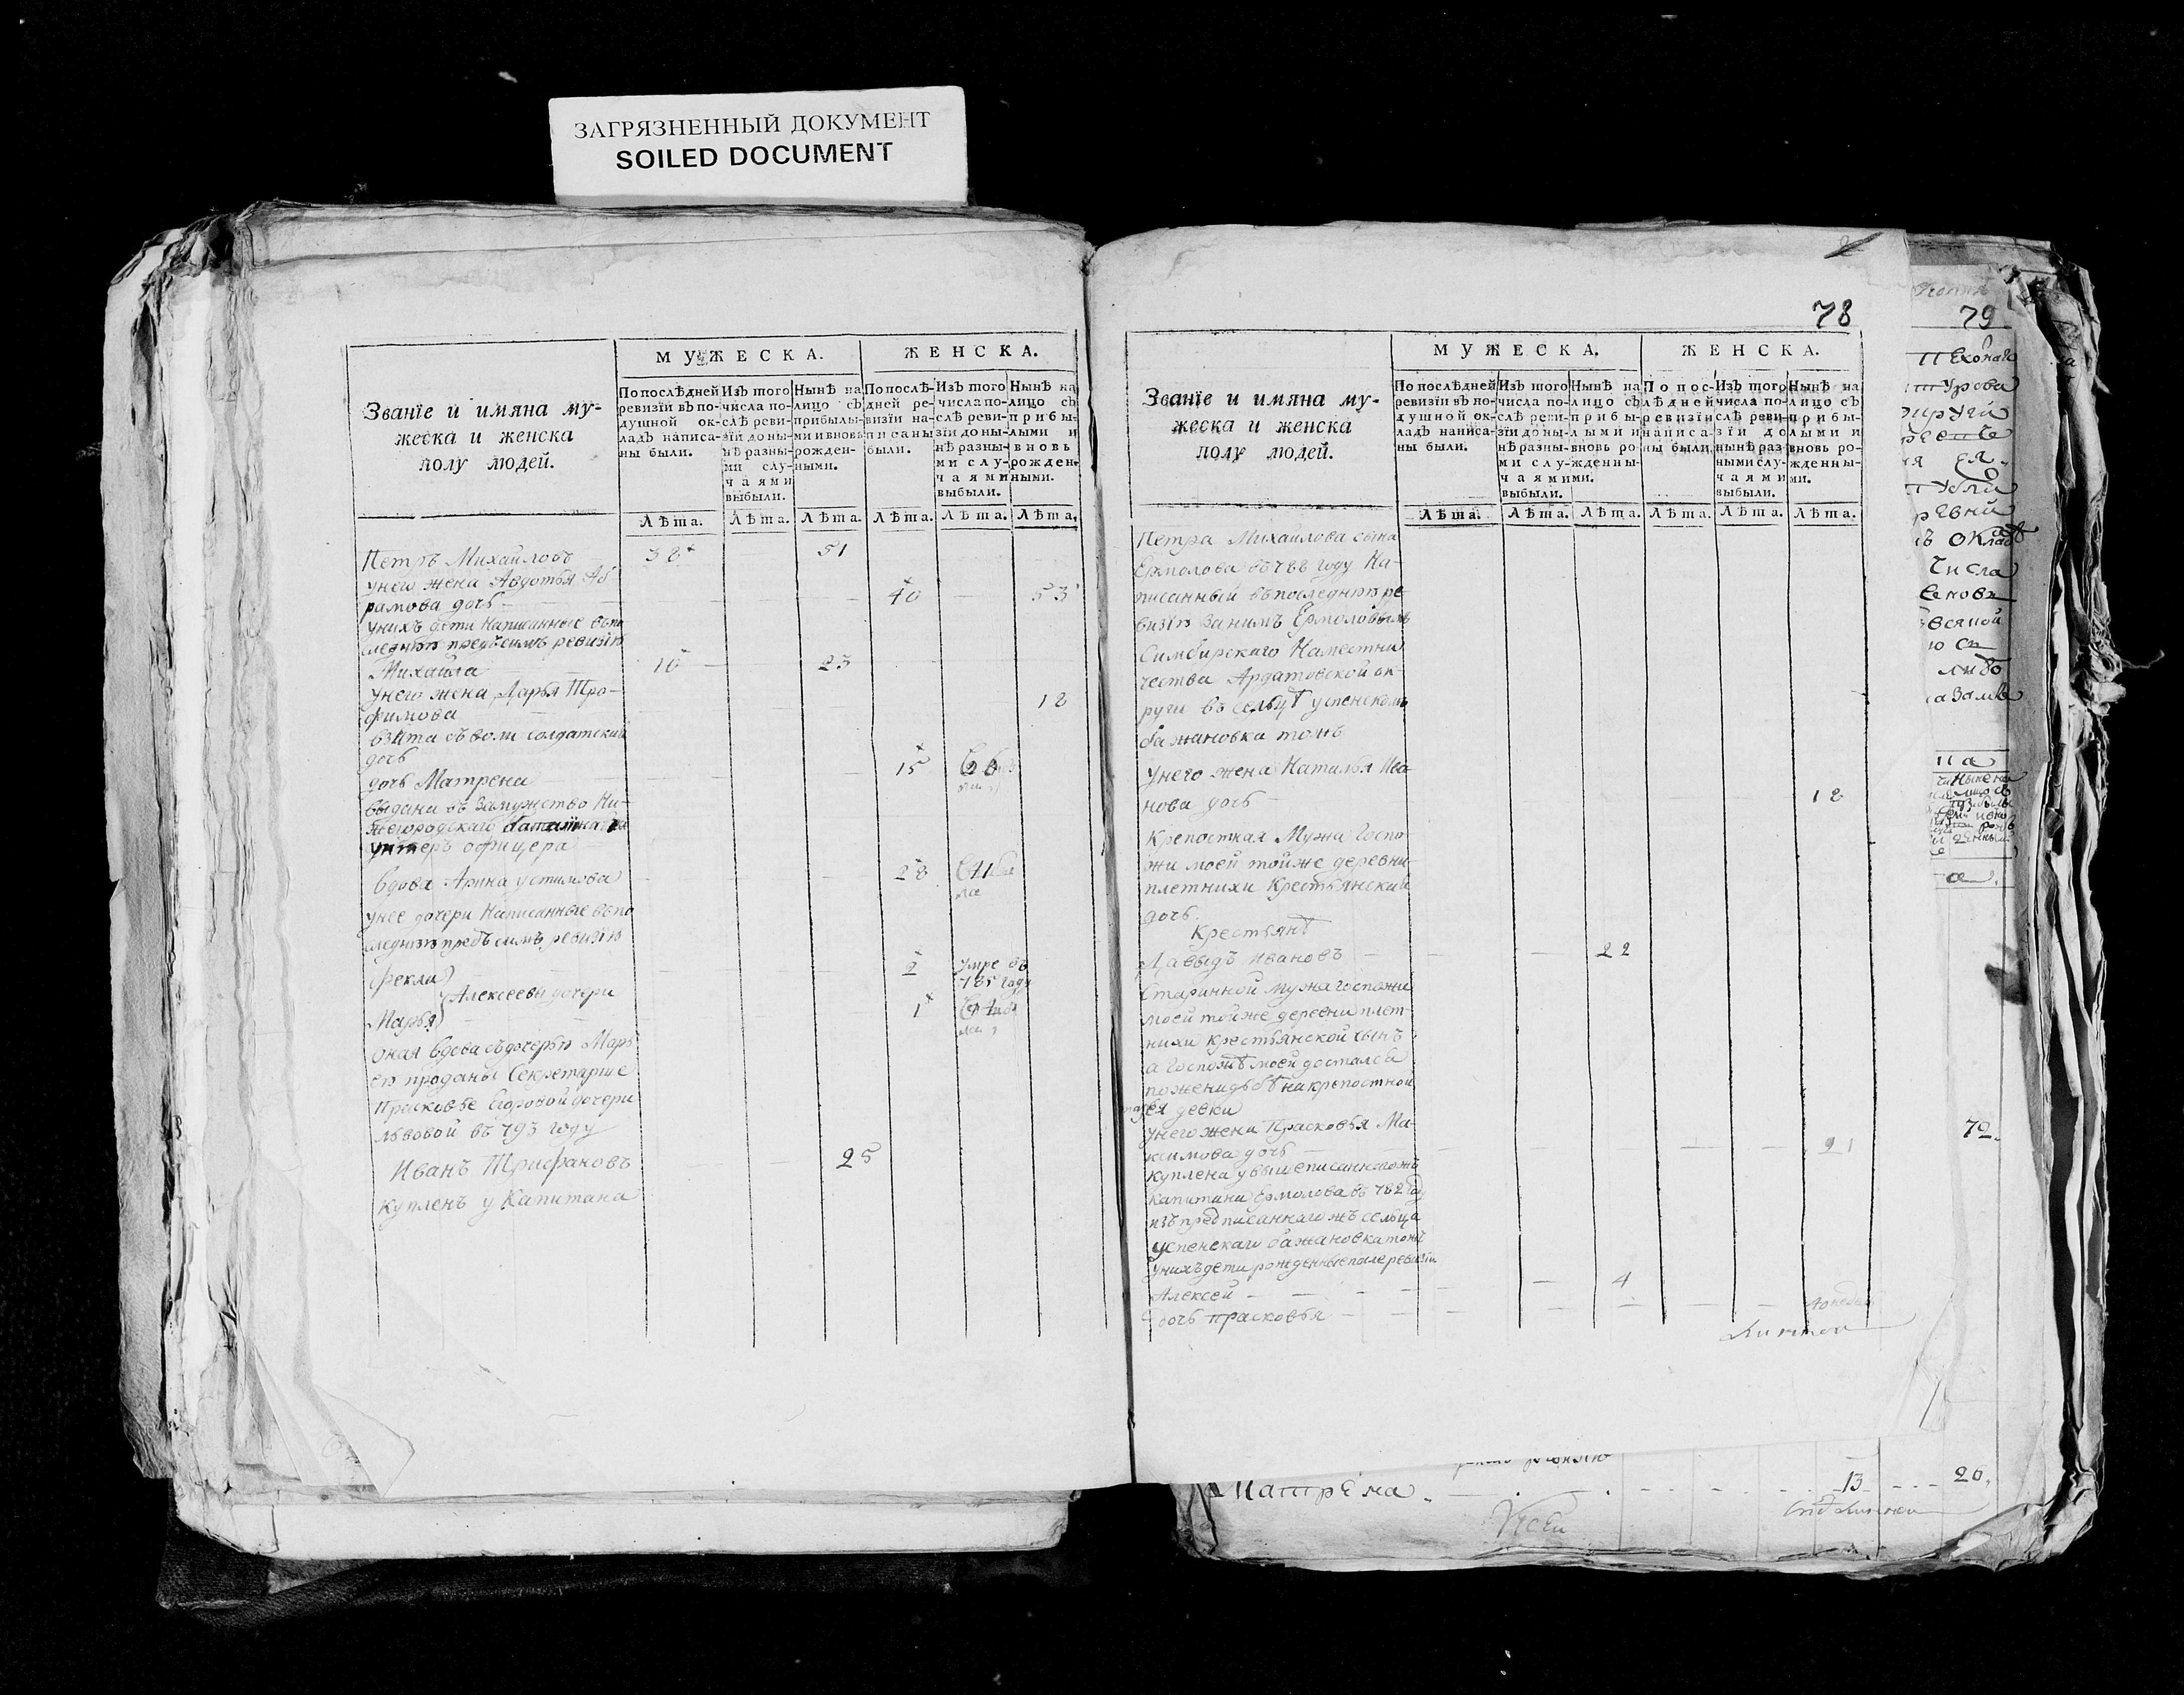 ЗАГРЯЗНЕННЫЙ ДОКУМЕНТ
SOILED DOCUMENT
МУЖЕСКА. ЖЕНСКА.
Званїе и имяна му-
жеска и женска
полу людей.
По послѣдней ревизїи въ по-
душной ок-
ладъ написа-
ны были.
Изъ того
числа по-
слѣ реви-
зїи до ны-
нѣ разны-
ми слу-
чаями
выбыли.
Нынѣ на
лицо съ
прибылы-
ми и вновь
рожден-
ными.
По послѣ-
дней ре-
визїи на-
писаны
были.
Изъ того
числа по-
слѣ реви-
зїи до ны-
нѣ разны-
ми слу-
чаями
выбыли.
Нынѣ на
лицо съ
прибы-
лыми и
вновь
рожден-
ными.
Лѣта. Лѣта. Лѣта. Лѣта. Лѣта. Лѣта.
Петръ Михайловъ 38 51
унего жена Авдотья Аб-
рамова дочь 40 53
унихъ дети написанные впо
следнюю предъсимъ ревизїю
Михайла 10 23
унего жена Дарья Тро-
фимова 18
взята съ воли солдатская
дочь
дочь Матрена 15
выдана въ замужство Ни-
жегородскаго баталиона
унтеръ офицера
Вдова Арина устимова 28
унее дочери написанные въпо
следнюю предъ симъ ревизїю
Фекла 2 умре въ
785 году
Алексеевы дочери
Марья 1
оная вдова съдочерью Марь
ею проданы Секретарше
Прасковье Егоровой дочери
Львовой въ 793 году
Иванъ Трифановъ 25
купленъ у Капитана
78
МУЖЕСКА. ЖЕНСКА.
Званїе и имяна му-
жеска и женска
полу людей.
По послѣдней
ревизїи въ по-
душной ок-
ладъ написа-
ны были.
Изъ того
числа по-
слѣ реви-
зїи до ны-
нѣ разны-
ми слу-
чаями
выбыли.
Нынѣ на
лицо съ
прибы-
лыми и
вновь ро-
жденны-
ми.
По пос-
лѣдней
ревизїи
написа-
ны были
Изъ того
числа по-
слѣ реви-
зїи до
нынѣ раз-
ными слу-
чаями
выбыли.
Нынѣ на
лицо съ
прибы-
лыми и
вновь ро-
жденны-
ми.
Лѣта. Лѣта. Лѣта. Лѣта. Лѣта. Лѣта.
Петра Михайлова сына
Ермолова въ 788 году На-
писанный въпоследнюю ре-
визїю занимъ Ермоловымъ
Симбирскаго Наместни
чества Ардатовской ок-
руги въ сельцѣ успенскомъ
бажановка томъ
унего жена Наталья Ива
нова дочь 18
Крепостная Мужа Госпо-
жи моей тойже деревни
плетнихи Крестьянская
дочь.
Крестьянѣ
Давыдъ Ивановъ 22
Старинной мужа госпожи
моей тойже деревни плет-
нихи крестьянской сынъ
а Госпожѣ моей достался
поженидьбѣ на крепостной
ея девки
унего жена Прасковья Ма-
ксимова дочь 21
куплена у вышеписаннагожъ
капитана Ермолова въ 782 году
изъ предписаннагожъ сельца
успенскаго бажановка тожъ
унихъ дети рожденные после ревизїи
Алексей 4
дочь прасковья
79
оклад
числа
72.
Матрена 13 26.